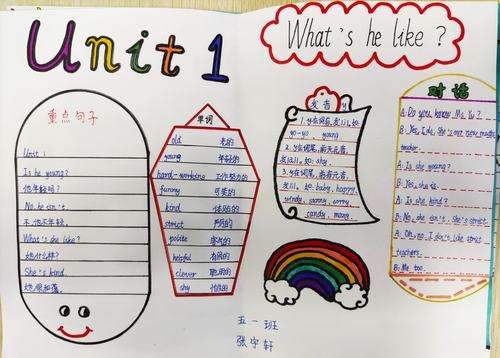 Unit 1
What's he like?
重点句子
Unit 1
Is he young?
他年轻吗?
No, he isn't.
不,他不年轻。
What's she like?
她什么样?
She's kind.
她很和蔼。
单词
old 老的
young 年轻的
hard-working 工作努力的
funny 可笑的
kind 体贴的
strict 严厉的
polite 客气的
helpful 有用的
clever 聪明的
shy 怕羞的
发音 y
1. y在词首,发/j/, 如:
yo-yo, young
2. y在词尾,前无元音,
发/ai/, 如: shy.
3. y在词尾,前有元音,
发/i/, 如: baby, happy,
windy, sunny, sorry
candy, many.
对话
A: Do you know Ms Yu?
B: Yes, I do. She's our new
teacher.
A: Is she young?
B: Yes, she is.
A: Is she kind?
B: No, she isn't. She's strict.
A: Oh, no. I don't like strict
teachers.
B: Me too.
五一班
张宇轩